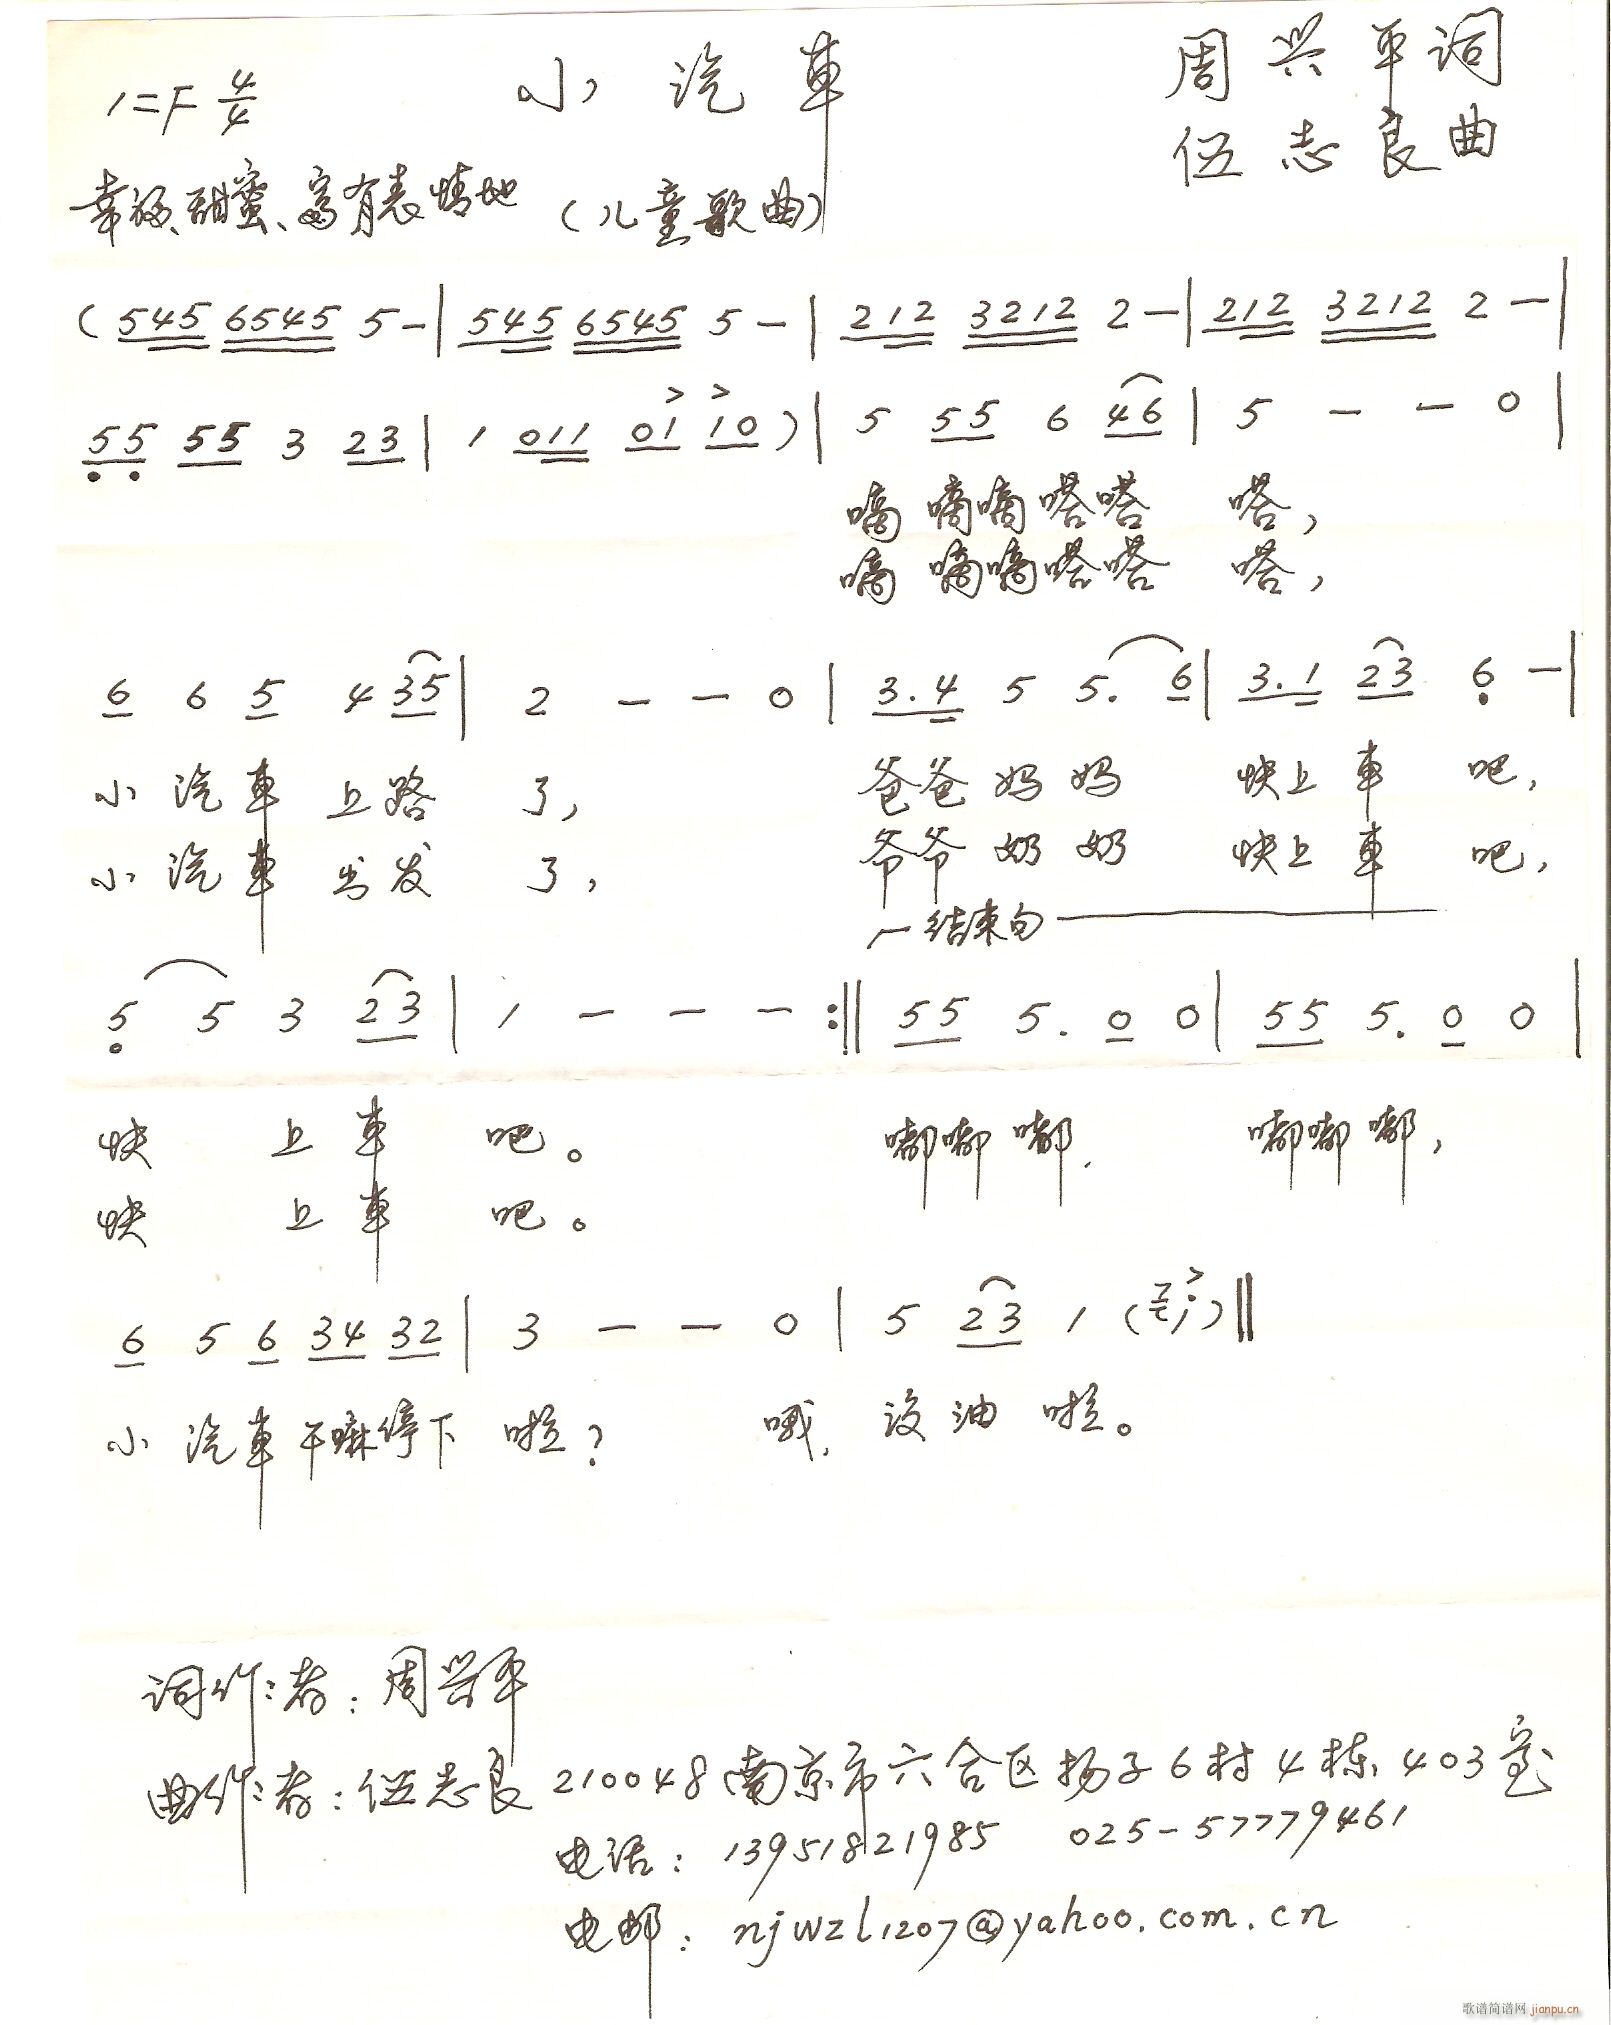 小汽車
周兴平词
1=F 4/4
伍志良曲
幸福、甜蜜、富有表情地 (儿童歌曲)
(545 6545 5-|545 6545 5-|212 3212 2-|212 3212 2-|
55 55 3 23|1 011 01 10)|5 55 6 46|5 - - 0|
嘀嘀嘀嗒嗒 嗒,
嘀嘀嘀嗒嗒 嗒,
6 6 5 4 35|2 - - 0|3.4 5 5. 6|3.1 23 6 -|
小汽車上路 了, 爸爸妈妈 快上車 吧,
小汽車出发 了, 爷爷奶奶 快上車 吧,
结束句
5 5 3 23|1 - - -:‖55 5. 0 0|55 5. 0 0|
快 上車 吧。 嘟嘟嘟, 嘟嘟嘟,
快 上車 吧。
6 5 6 34 32|3 - - 0|5 23 1 ( 1)‖
小汽車干嘛停下 啦? 哦, 没油啦。
词作者:周兴平
曲作者:伍志良 210048南京市六合区扬子6村4栋403室
电话: 13951821985 025-57779461
电邮: njwzl1207@yahoo.com.cn
歌谱简谱网 jianpu.cn